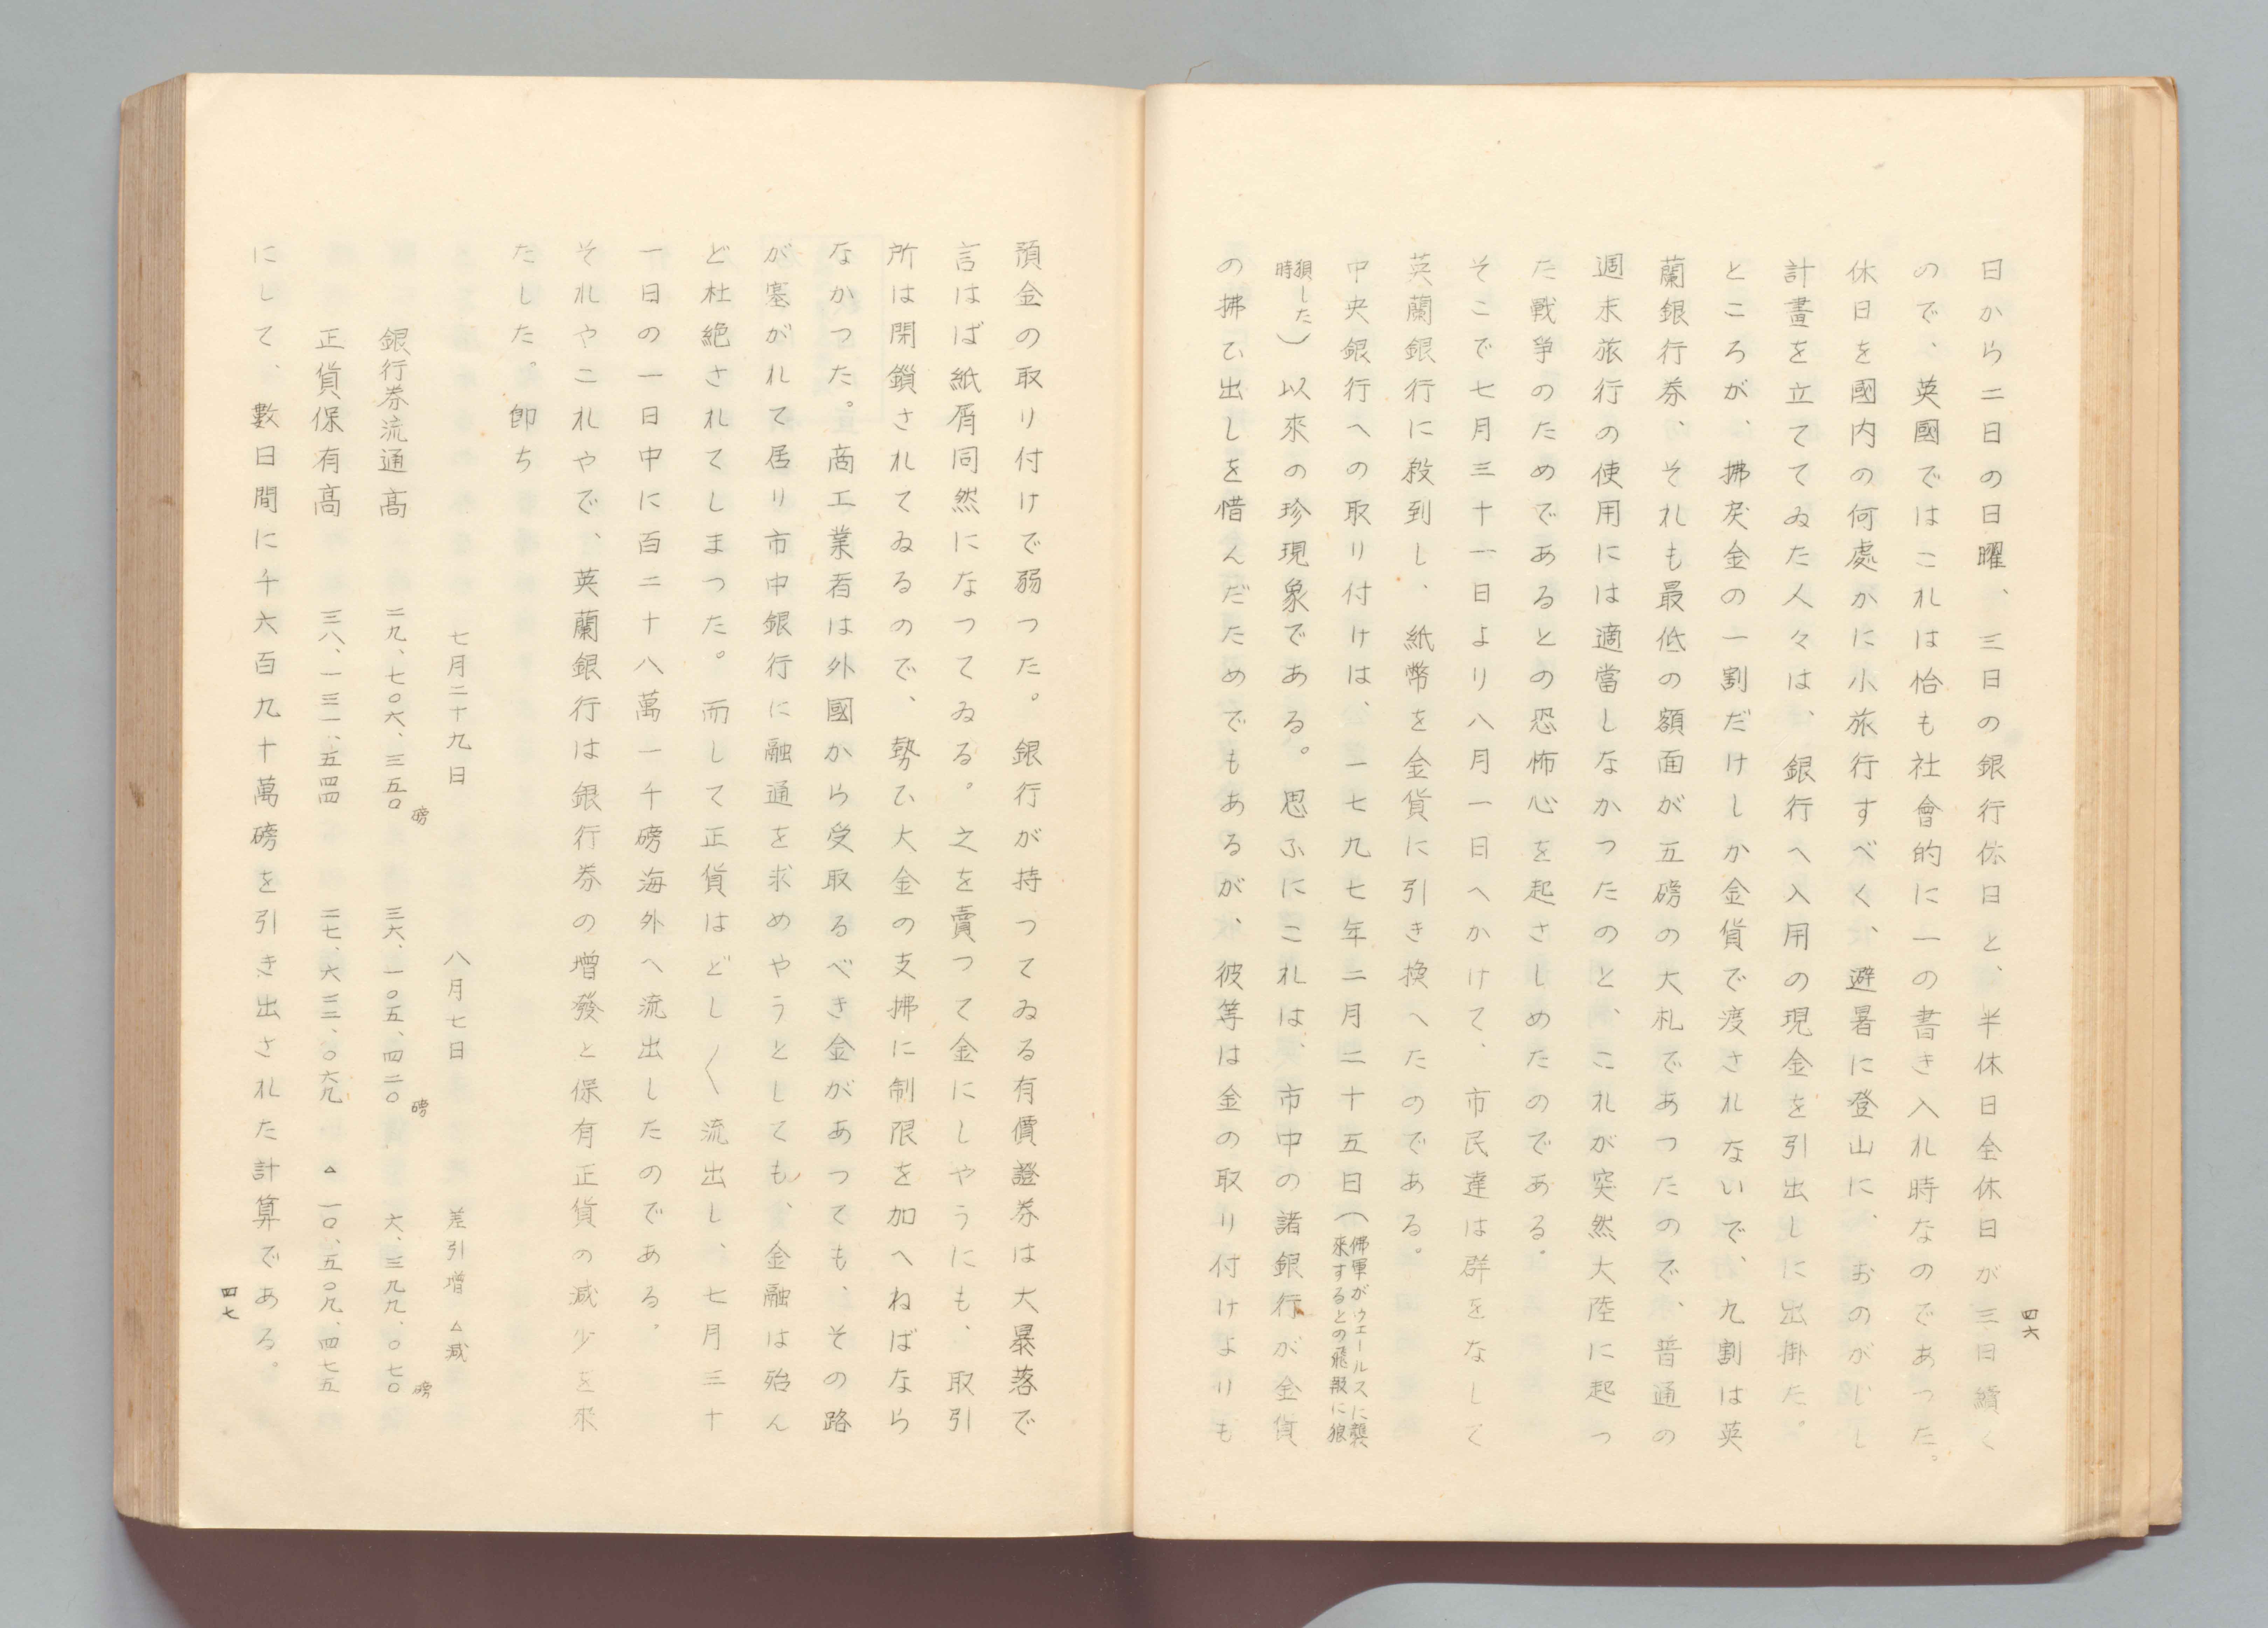 四六
日から二日の日曜、三日の銀行休日と、半休日全休日が三日續く
ので、英國ではこれは恰も社會的に一の書き入れ時なのであつた。
休日を國内の何處かに小旅行すべく、避暑に登山に、おのがじし
計畫を立ててゐた人々は、銀行へ入用の現金を引出しに出掛た。
ところが、拂戻金の一割だけしか金貨で渡されないで、九割は英
蘭銀行券、それも最低の額面が五磅の大札であつたので、普通の
週末旅行の使用には適當しなかつたのと、これが突然大陸に起つ
た戰爭のためであるとの恐怖心を起さしめたのである。
そこで七月三十一日より八月一日へかけて、市民達は群をなして
英蘭銀行に殺到し、紙幣を金貨に引き換へたのである。
中央銀行への取り付けは、一七九七年二月二十五日(佛軍がウエールスに襲
來するとの飛報に狼
狽した
時)以來の珍現象である。思ふにこれは、市中の諸銀行が金貨
の拂ひ出しを惜んだためでもあるが、彼等は金の取り付けよりも
預金の取り付けで弱つた。銀行が持つてゐる有價證券は大暴落で
言はば紙屑同然になつてゐる。之を賣つて金にしやうにも、取引
所は閉鎖されてゐるので、勢ひ大金の支拂に制限を加へねばなら
なかつた。商工業者は外國から受取るべき金があつても、その路
が塞がれて居り市中銀行に融通を求めやうとしても、金融は殆ん
ど杜絶されてしまつた。而して正貨はどし〱流出し、七月三十
一日の一日中に百二十八萬一千磅海外へ流出したのである。
それやこれやで、英蘭銀行は銀行券の增發と保有正貨の減少を來
たした。卽ち
七月二十九日 八月七日 差引增 △減
銀行券流通高 二九、七〇六、三五〇磅 三六、一〇五、四二〇磅 六、三九九、〇七〇磅
正貨保有高 三八、一三一、五四四 二七、六三二、〇六九 △一〇、五〇九、四七五
にして、數日間に千六百九十萬磅を引き出された計算である。
四七